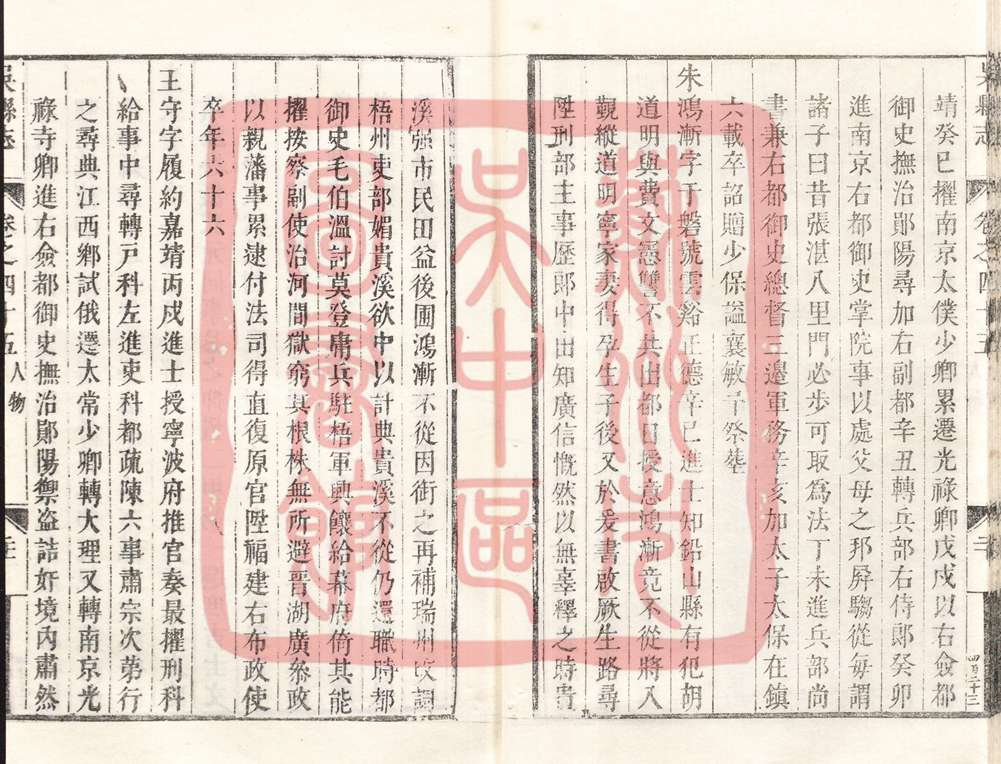 吳縣志
卷之四十五
四百二十三
靖癸巳擢南京太僕少卿累遷光祿卿戊戌以右僉都
御史撫治鄖陽尋加右副都辛丑轉兵部右侍郎癸卯
進南京右都御史掌院事以處父母之邦屏騶從每謂
諸子曰昔張湛八里門必步可取為法丁未進兵部尚
書兼右都御史總督三邊軍務辛亥加太子太保在鎮
六載卒詔贈少保謚襄敏予祭塟
朱鴻漸字于磐號雲谿正德辛巳進士知鉛山縣有犯胡
道明與費文憲讐不共出都日授意鴻漸竟不從將入
覲縱道明寧家妻得孕生子後又於爰書啟厥生路尋
陞刑部主事歷郎中出知廣信慨然以無辜釋之時貴
溪强市民田益後圃鴻漸不從因銜之再補瑞州改調
梧州吏部媚貴溪欲中以計典貴溪不從仍還職時都
御史毛伯溫討莫登庸兵駐梧軍興饟給幕府倚其能
擢按察副使治河間獄窮其根株無所避晉湖廣叅政
以親藩事累逮付法司得直復原官陞福建右布政使
卒年六十六
王守字履約嘉靖丙戌進士授寧波府推官奏最擢刑科
給事中尋轉戸科左進吏科都疏陳六事肅宗次第行
之尋典江西鄉試俄遷太常少卿轉大理又轉南京光
祿寺卿進右僉都御史撫治鄖陽禦盜詰奸境內肅然
吳縣志
卷之四十五
人物
蘇州市
吳中區
圖書館